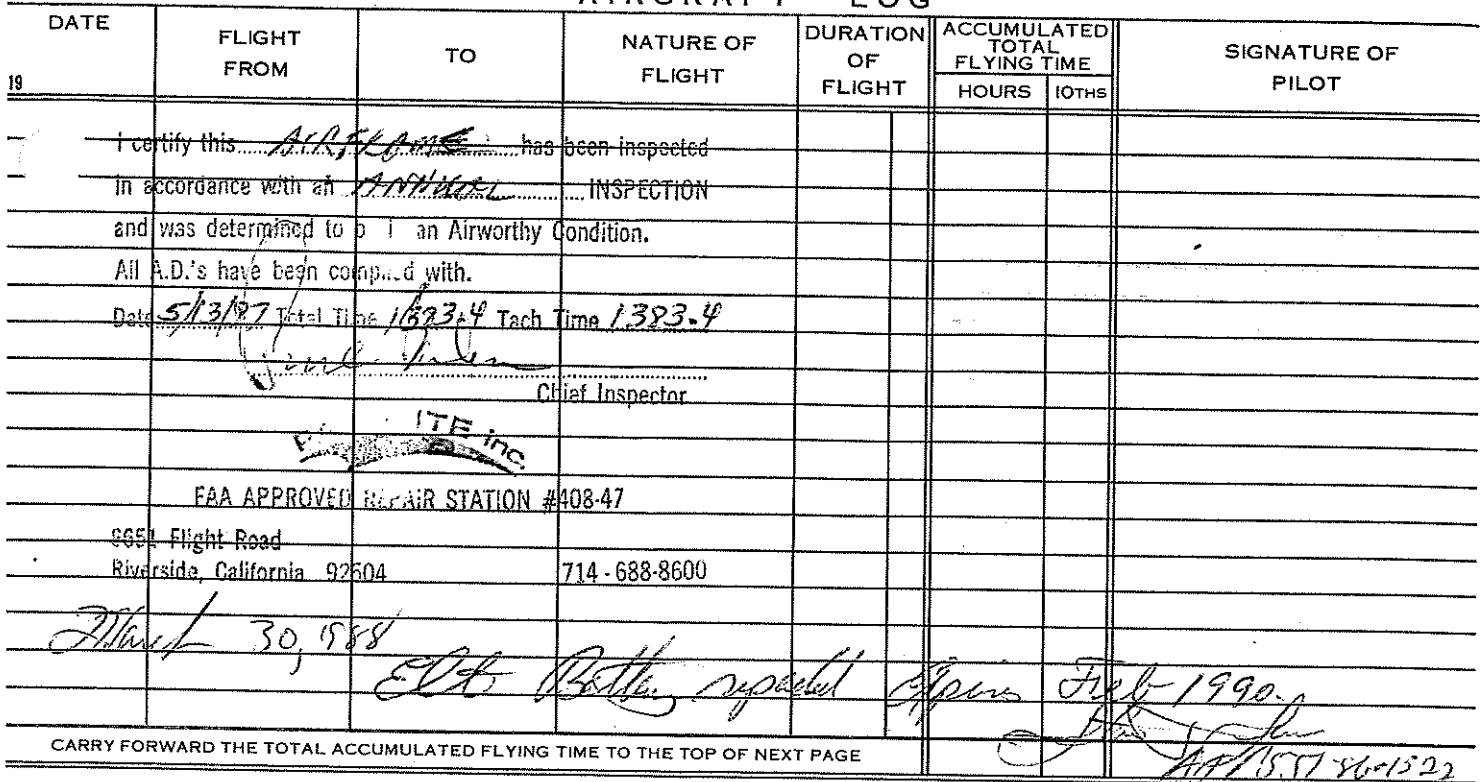 AIRCRAFT LOG
DATE
19
FLIGHT FROM
TO
NATURE OF FLIGHT
DURATION OF FLIGHT
ACCUMULATED TOTAL FLYING TIME
HOURS 10THS
SIGNATURE OF PILOT
I certify this AIRFRAME has been inspected
in accordance with an ANNUAL INSPECTION
and was determined to b i an Airworthy Condition.
All A.D.'s have been comp d with.
Date 5/13/87 Total Time 1383.4 Tach Time 1383.4
Chief Inspector
ITE inc.
FAA APPROVED REPAIR STATION #408-47
Flight Road
Riverside, California 92504 714-688-8600
March 30, 1988
Elt Battery Expires Feb 1990.
CARRY FORWARD THE TOTAL ACCUMULATED FLYING TIME TO THE TOP OF NEXT PAGE